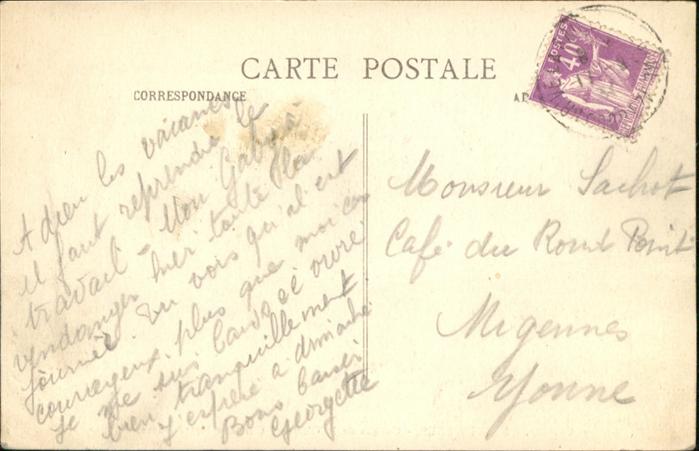 CARTE POSTALE
CORRESPONDANCE
Adieu les vacances
il faut reprendre le
travail - Mon Gaby a
vendangé hier toute la
journée. Tu vois qu'il est
courageux, plus que moi car
Je me suis
bien tranquillement
J'espère a dimanche
Bons baisers
Georgette
POSTES
40
Monsieur Sachot
Café du Rond Point
Migennes
Yonne